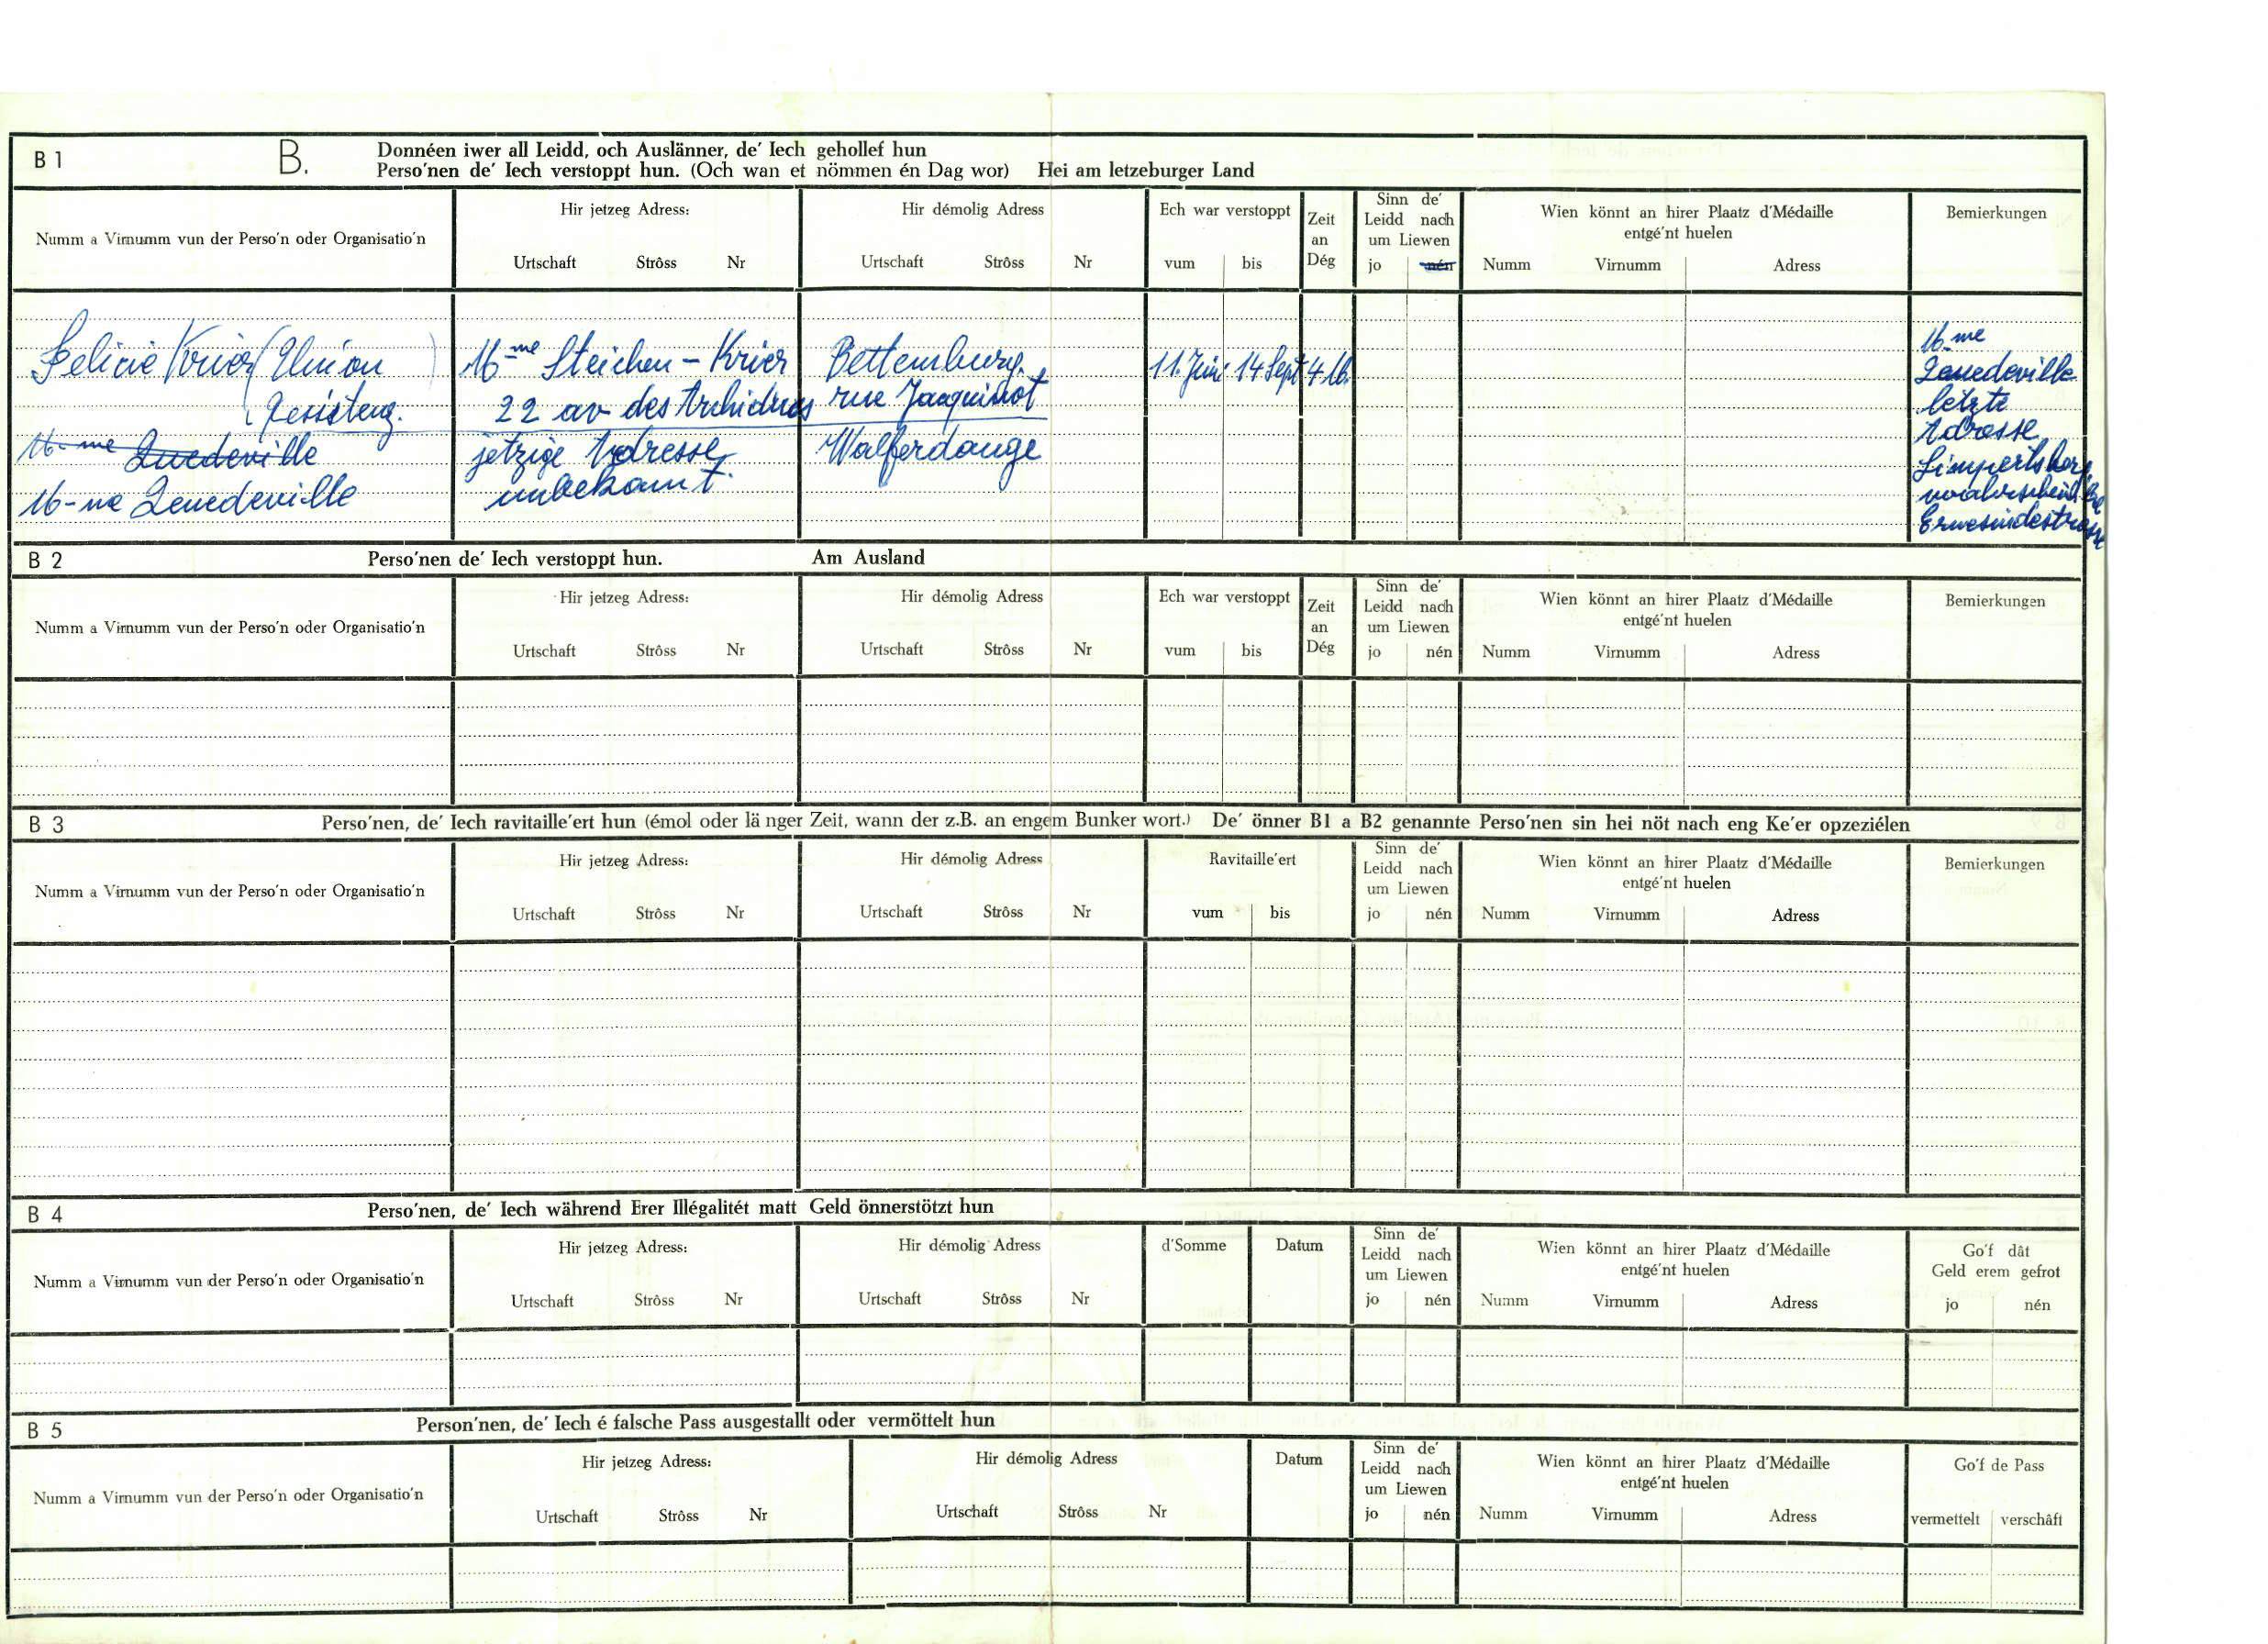 B 1 B. Donnéen iwer all Leidd, och Auslänner, de' Iech gehollef hun
Perso'nen de' Iech verstoppt hun. (Och wan et nömmen én Dag wor) Hei am letzeburger Land
Numm a Virnumm vun der Perso'n oder Organisatio'n
Hir jetzeg Adress:
Urtschaft Strôss Nr
Hir démolig Adress
Urtschaft Strôss Nr
Ech war verstoppt
vum bis
Zeit
an
Dég
Sinn de'
Leidd nach
um Liewen
jo nén
Wien könnt an hirer Plaatz d'Médaille
entgé'nt huelen
Numm Virnumm Adress
Bemierkungen
Felicie Krier (Union
Resistenz.
Steichen - Krier
22 av des Archiducs
Bettemburg.
rue Jacquinot
11. Juni 14 Sept 4
jetzige Adresse
unbekannt.
Walferdange
letzte
Adresse
Limpertsberg
wahrscheinl.
Ermesindestrasse
B 2 Perso'nen de' Iech verstoppt hun. Am Ausland
Numm a Virnumm vun der Perso'n oder Organisatio'n
Hir jetzeg Adress:
Urtschaft Strôss Nr
Hir démolig Adress
Urtschaft Strôss Nr
Ech war verstoppt
vum bis
Zeit
an
Dég
Sinn de'
Leidd nach
um Liewen
jo nén
Wien könnt an hirer Plaatz d'Médaille
entgé'nt huelen
Numm Virnumm Adress
Bemierkungen
B 3 Perso'nen, de' Iech ravitaille'ert hun (émol oder länger Zeit, wann der z.B. an engem Bunker wort.) De' önner B1 a B2 genannte Perso'nen sin hei nöt nach eng Ke'er opzeziélen
Numm a Virnumm vun der Perso'n oder Organisatio'n
Hir jetzeg Adress:
Urtschaft Strôss Nr
Hir démolig Adress
Urtschaft Strôss Nr
Ravitaille'ert
vum bis
Sinn de'
Leidd nach
um Liewen
jo nén
Wien könnt an hirer Plaatz d'Médaille
entgé'nt huelen
Numm Virnumm Adress
Bemierkungen
B 4 Perso'nen, de' Iech während Erer Illégalitét matt Geld önnerstötzt hun
Numm a Virnumm vun der Perso'n oder Organisatio'n
Hir jetzeg Adress:
Urtschaft Strôss Nr
Hir démolig Adress
Urtschaft Strôss Nr
d'Somme Datum
Sinn de'
Leidd nach
um Liewen
jo nén
Wien könnt an hirer Plaatz d'Médaille
entgé'nt huelen
Numm Virnumm Adress
Go'f dât
Geld erem gefrot
jo nén
B 5 Person'nen, de' Iech é falsche Pass ausgestallt oder vermöttelt hun
Numm a Virnumm vun der Perso'n oder Organisatio'n
Hir jetzeg Adress:
Urtschaft Strôss Nr
Hir démolig Adress
Urtschaft Strôss Nr
Datum
Sinn de'
Leidd nach
um Liewen
jo nén
Wien könnt an hirer Plaatz d'Médaille
entgé'nt huelen
Numm Virnumm Adress
Go'f de Pass
vermettelt verschâft